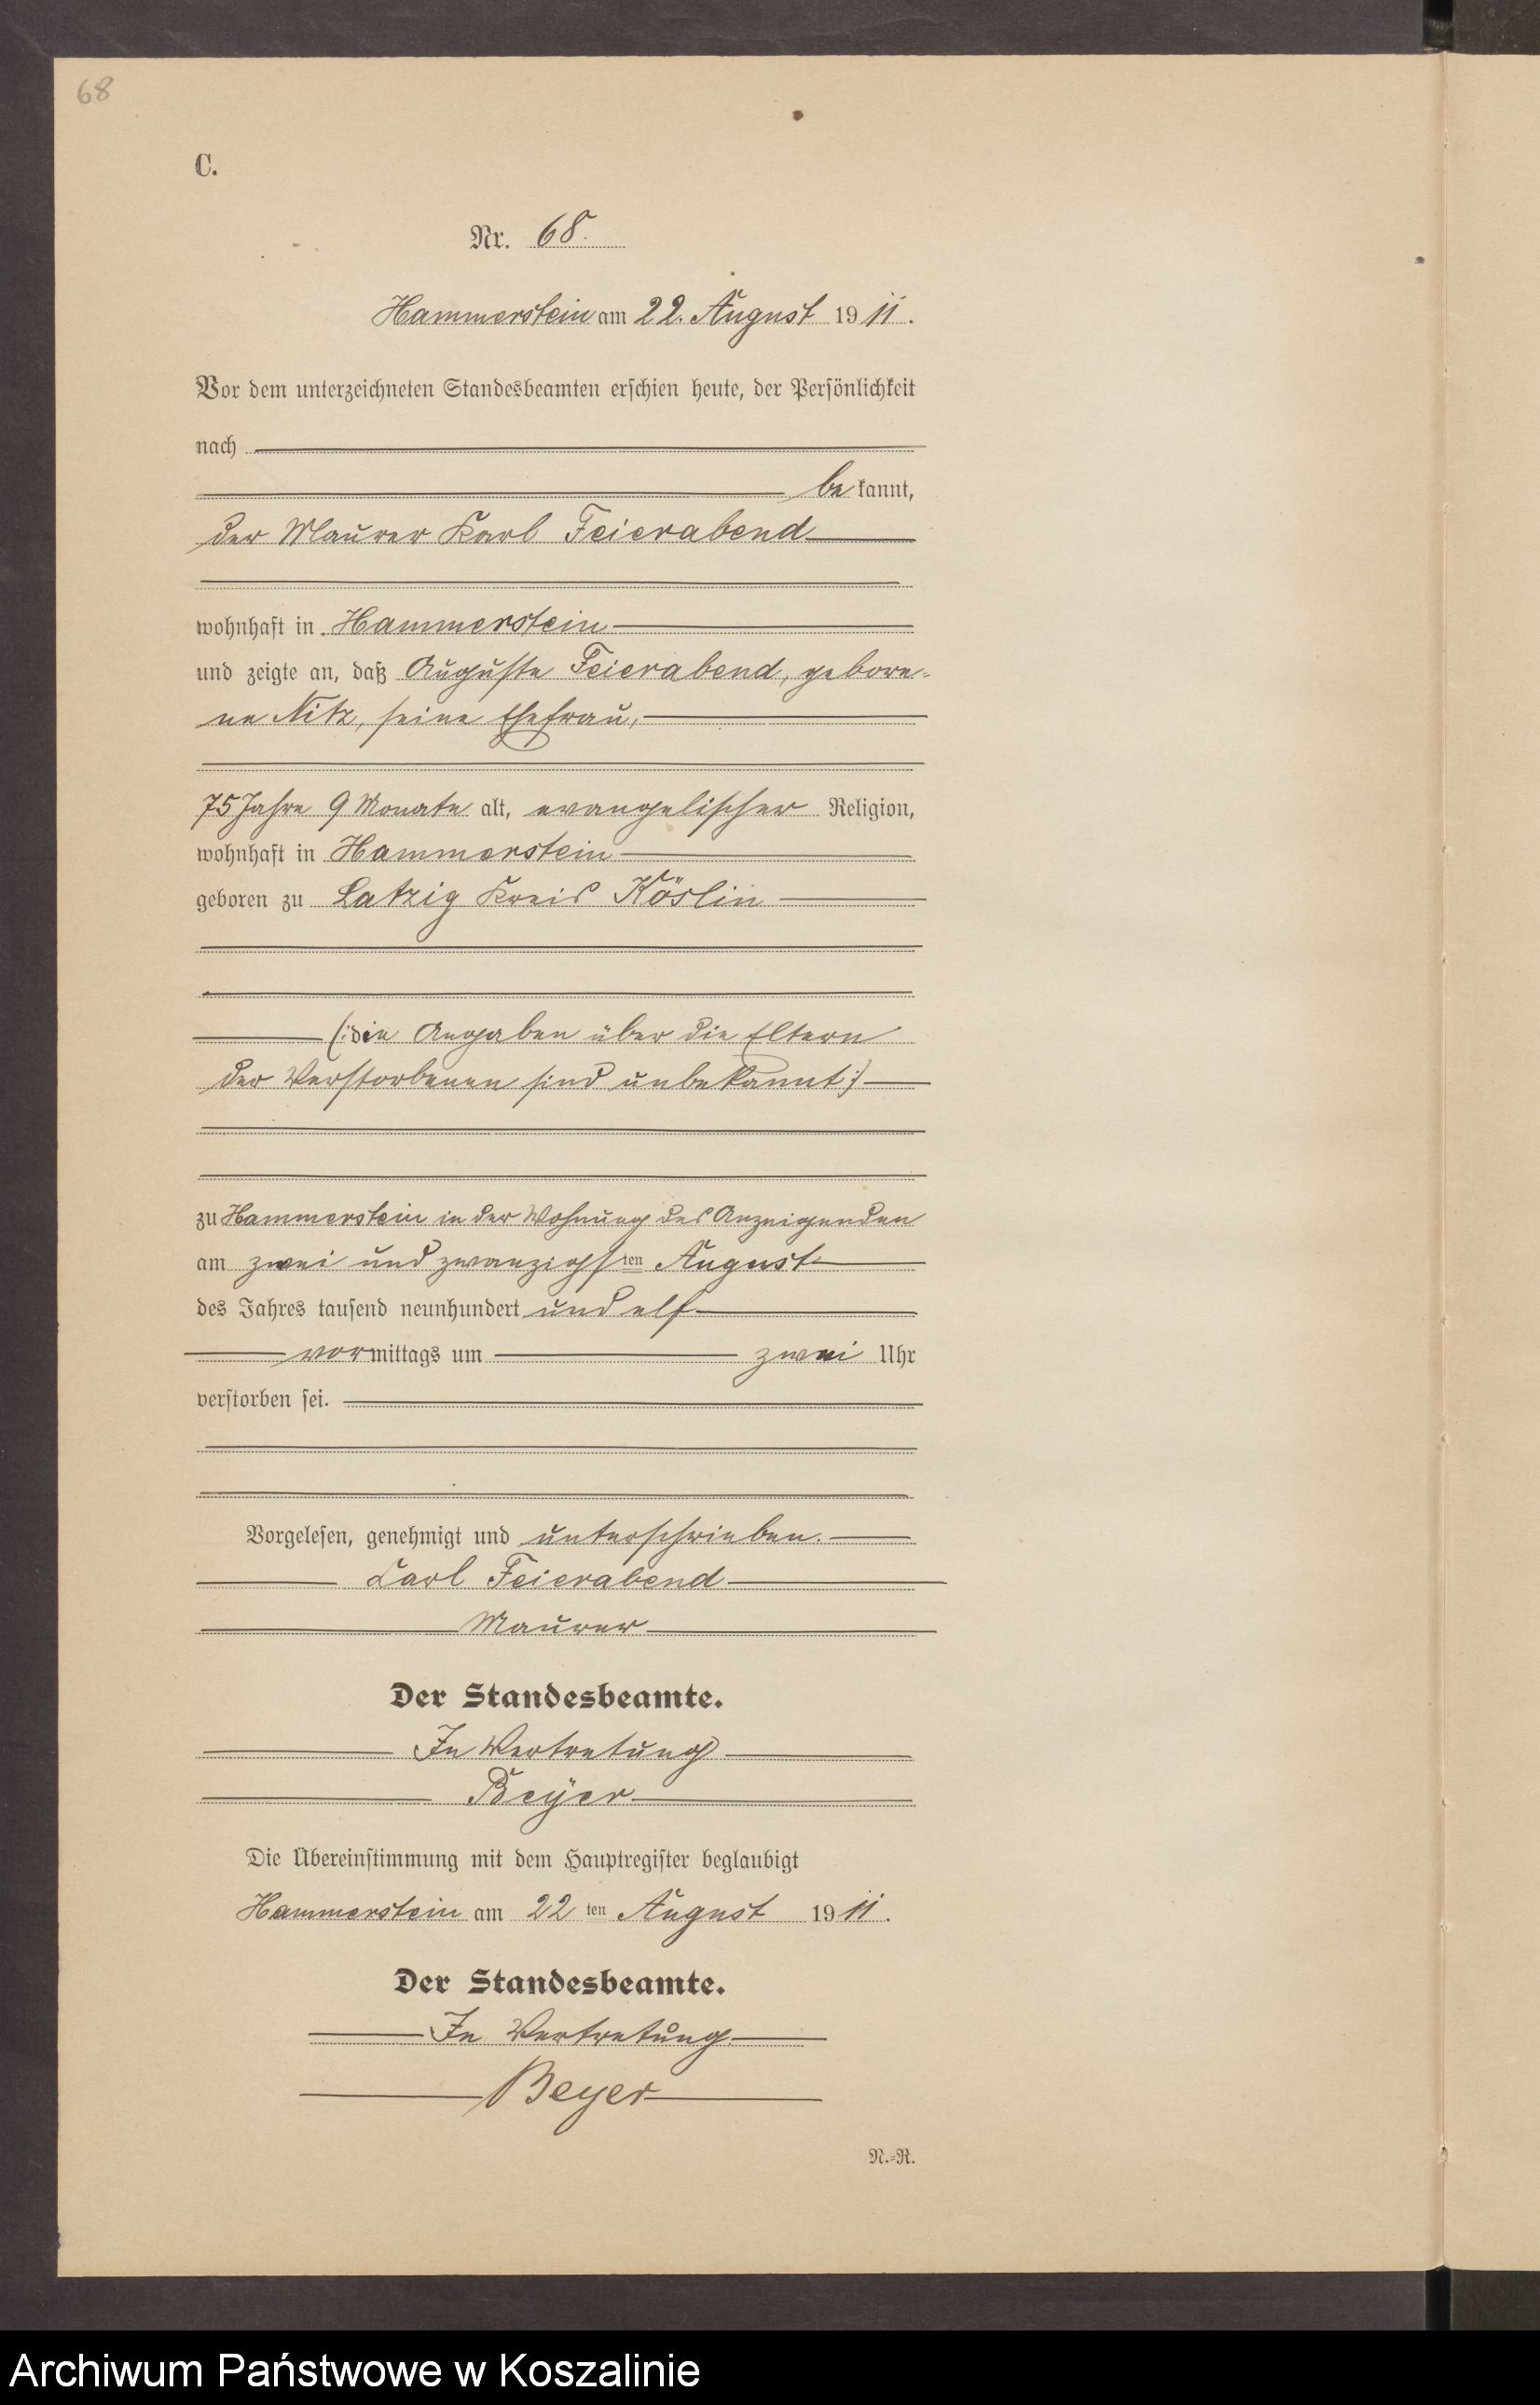 68
C.
Nr. 68.
Hammerstein am 22. August 1911.
Vor dem unterzeichneten Standesbeamten erschien heute, der Persönlichkeit
nach
bekannt,
der Maurer Karl Feierabend
wohnhaft in Hammerstein
und zeigte an, daß Auguste Feierabend, gebore-
ne Nitz, seine Ehefrau,
75 Jahre 9 Monate alt, evangelischer Religion,
wohnhaft in Hammerstein
geboren zu Latzig Kreis Köslin
(: die Angaben über die Eltern
der Verstorbenen sind unbekannt :)
zu Hammerstein in der Wohnung des Anzeigenden
am zwei und zwanzigsten August
des Jahres tausend neunhundert und elf
vormittags um zwei Uhr
verstorben sei.
Vorgelesen, genehmigt und unterschrieben.
Carl Feierabend
Maurer
Der Standesbeamte.
In Vertretung
Beyer
Die Übereinstimmung mit dem Hauptregister beglaubigt
Hammerstein am 22ten August 1911.
Der Standesbeamte.
In Vertretung
Beyer
N.=R.
Archiwum Państwowe w Koszalinie